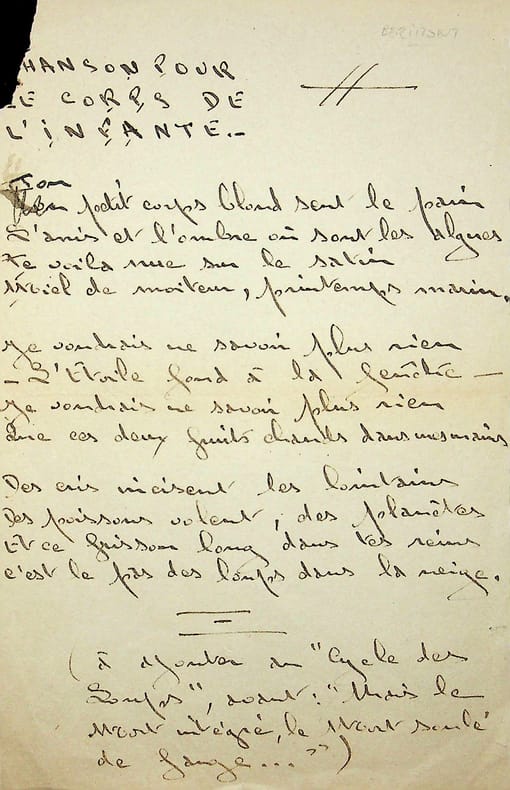 HANSON POUR
LE CORPS DE
L'INFANTE._
Ton
petit corps blond sent le pain
L'anis et l'ombre où sont les algues
Te voilà nue sur le satin
Miel de moiteur, printemps marin,
Je voudrais ne savoir plus rien
_ L'Étoile fond à la fenêtre _
Je voudrais ne savoir plus rien
Que ces deux fruits chauds dans mes mains
Des cris incisent les lointains
Des poissons volent, des planètes
Et ce frisson long dans tes reins
c'est le pas des loups dans la neige.
(à ajouter au "Cycle des
Loups", avant : "Mais le
Mort intégré, le Mort saulé
de Gange...")